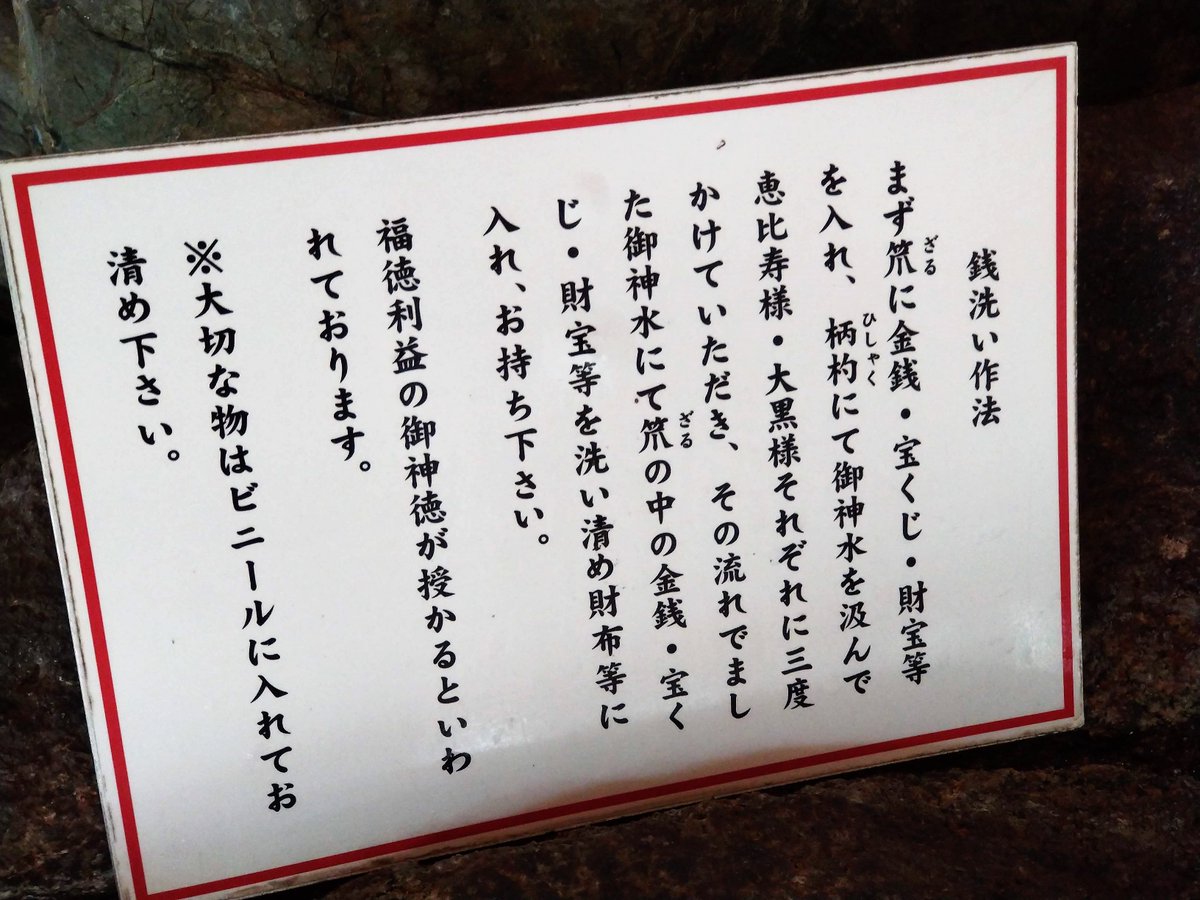 銭洗い作法
まず笊に金銭・宝くじ・財宝等
ざる
を入れ、柄杓にて御神水を汲んで
ひしゃく
恵比寿様・大黒様それぞれに三度
かけていただき、その流れでまし
た御神水にて笊の中の金銭・宝く
ざる
じ・財宝等を洗い清め財布等に
入れ、お持ち下さい。
福徳利益の御神徳が授かるといわ
れております。
※大切な物はビニールに入れてお
清め下さい。